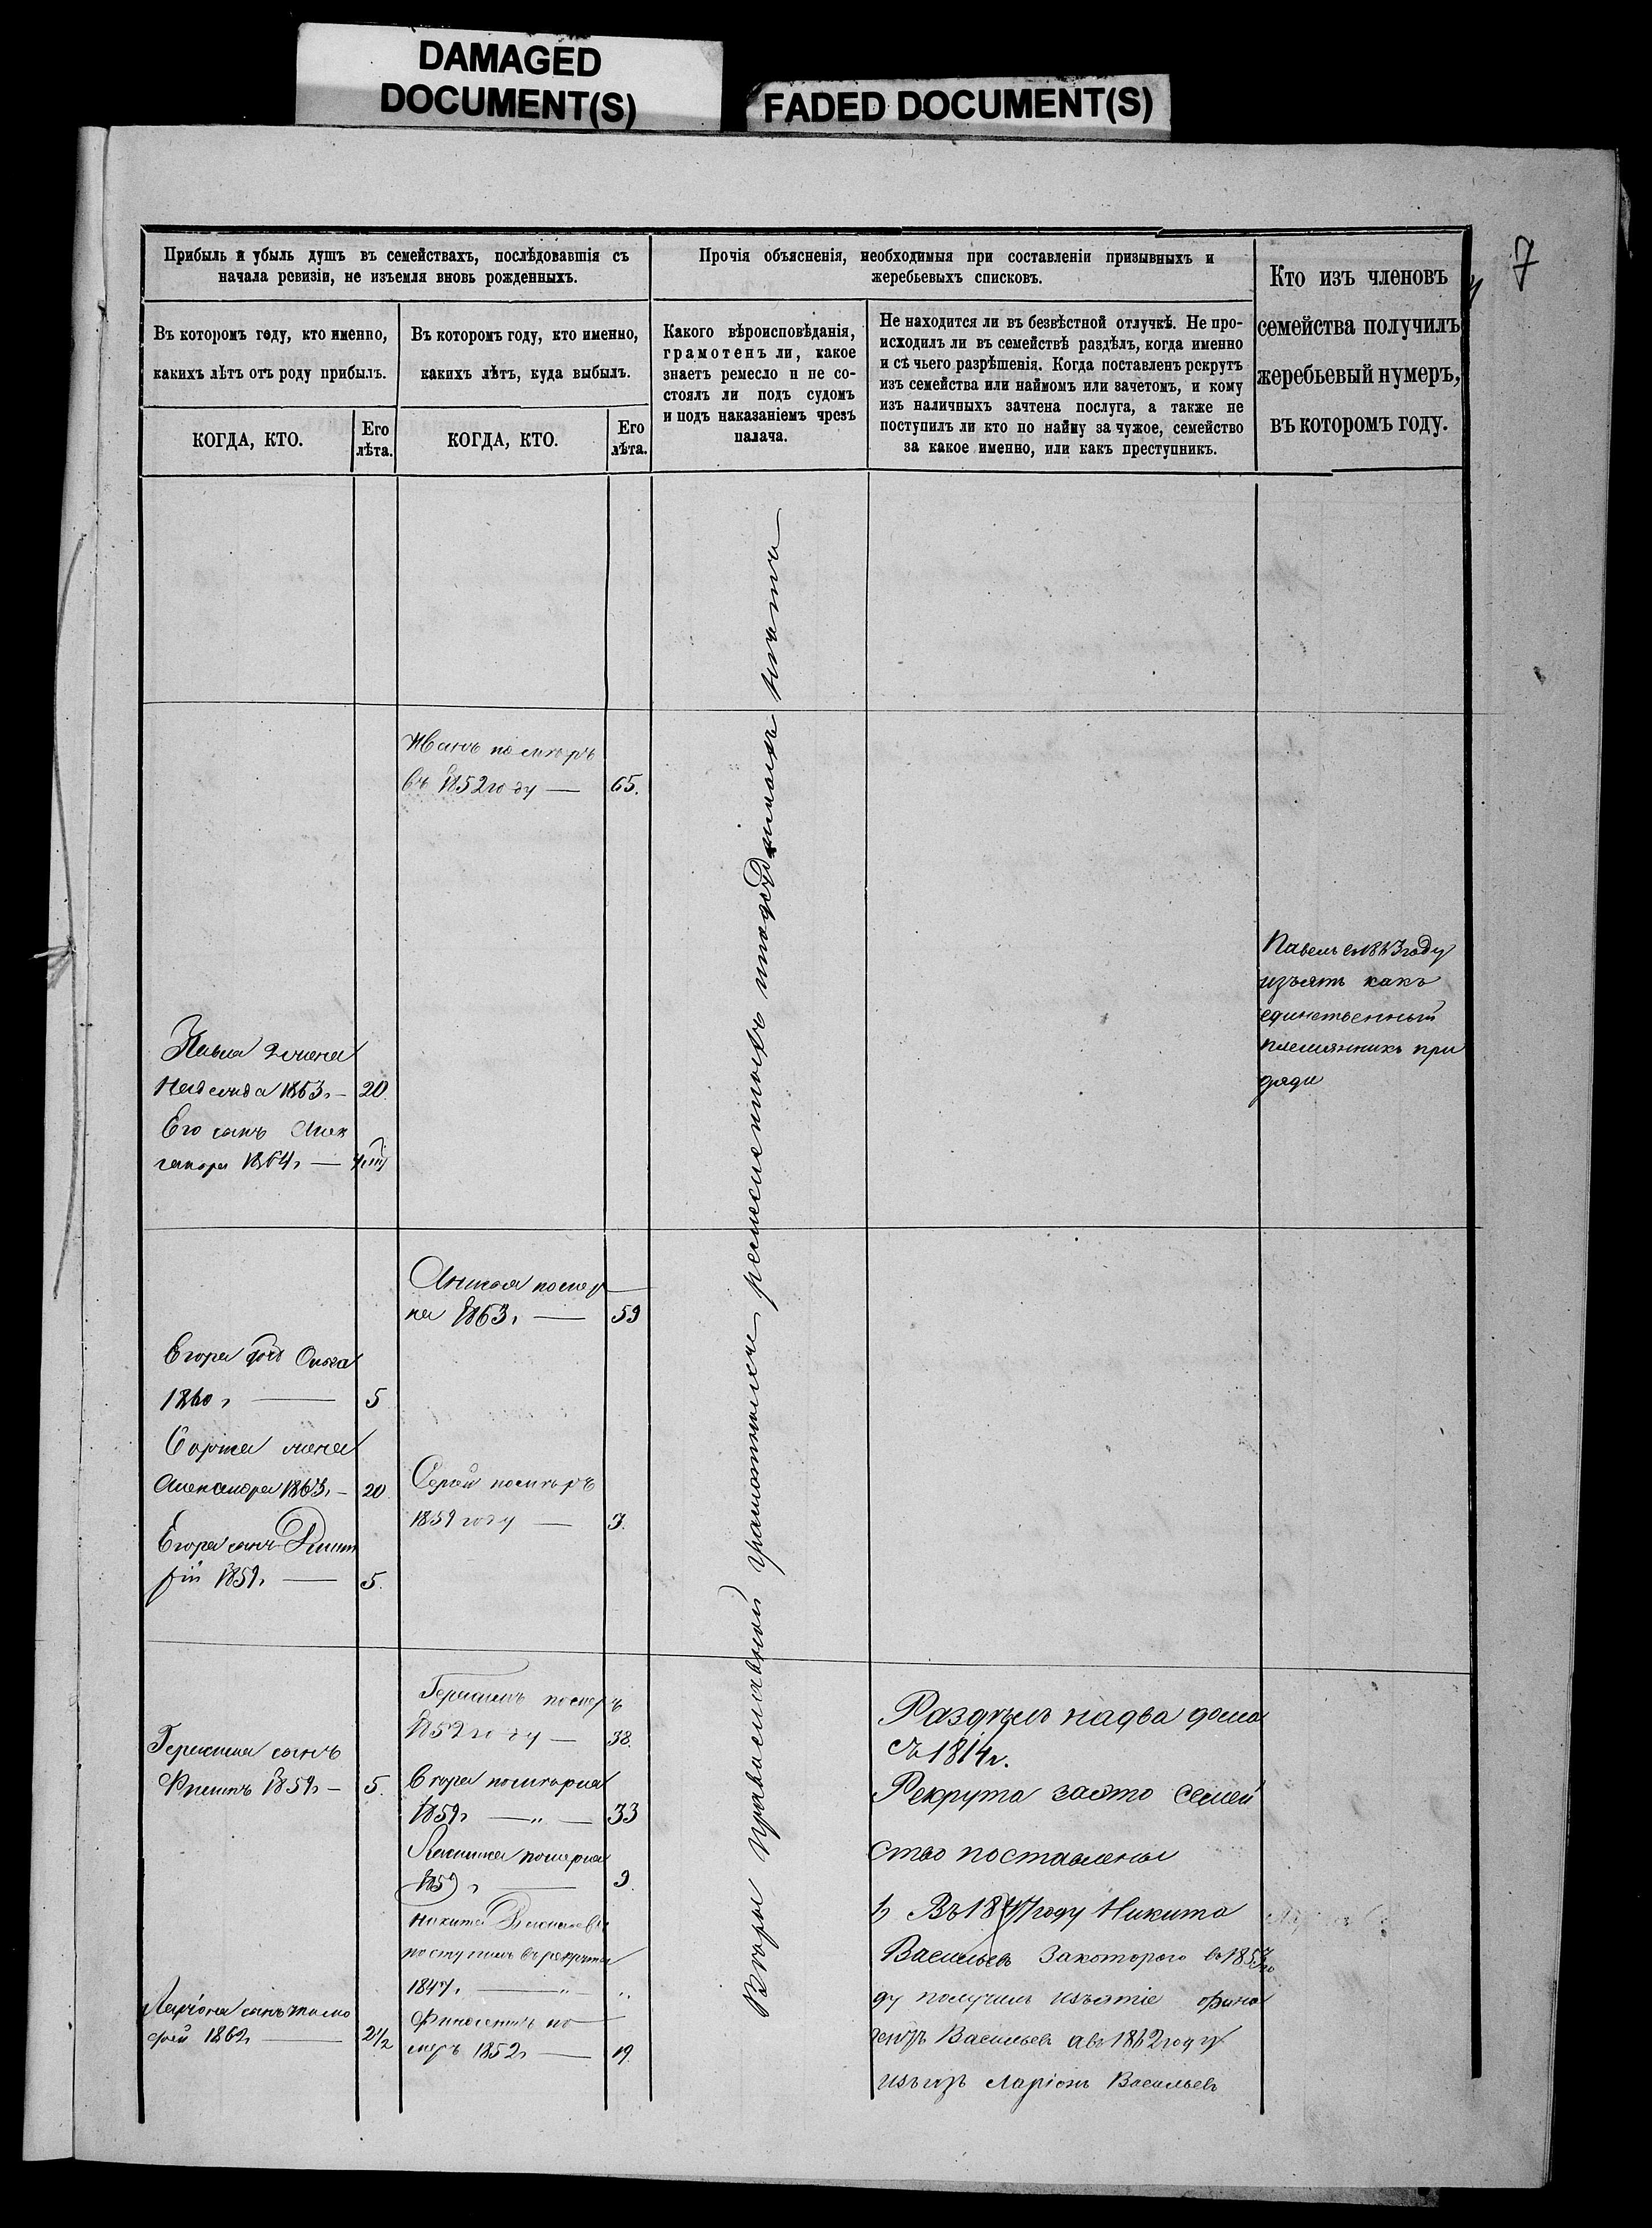 DAMAGED
DOCUMENT(S)
FADED DOCUMENT(S)
7
Прибыль и убыль душъ въ семействахъ, послѣдовавшія съ
начала ревизіи, не изъемля вновь рожденныхъ.
Прочія объясненія, необходимыя при составленіи призывныхъ и
жеребьевыхъ списковъ.
Кто изъ членовъ
семейства получилъ
жеребьевый нумеръ,
въ которомъ году.
Въ которомъ году, кто именно,
какихъ лѣтъ отъ роду прибылъ.
Въ которомъ году, кто именно,
какихъ лѣтъ, куда выбылъ.
Какого вѣроисповѣданія,
грамотенъ ли, какое
знаетъ ремесло и не со-
стоялъ ли подъ судомъ
и подъ наказаніемъ чрезъ
палача.
Не находится ли въ безвѣстной отлучкѣ. Не про-
исходилъ ли въ семействѣ раздѣлъ, когда именно
и съ чьего разрѣшенія. Когда поставленъ рекрутъ
изъ семейства или наймомъ или зачетомъ, и кому
изъ наличныхъ зачтена послуга, а также не
поступилъ ли кто по найму за чужое, семейство
за какое именно, или какъ преступникъ.
КОГДА, КТО.
Его
лѣта.
КОГДА, КТО.
Его
лѣта.
Иванъ помѣръ
въ 1852 году — 65.
Павелъ въ 1863 году
изъятъ какъ
единственный
племянникъ при
дяди
Павла жена
1863. — 20.
Его сынъ Алек
1864. —
помер
ла 1863. — 59
Егора дод Ольга
1860, — 5
жена
Александра 1863. — 20.
Сергей помѣръ
1859 году — 3.
Егора сынъ Дмит
рій 1859. — 5.
Вѣры православной грамотныхъ ремесленныхъ подсудимыхъ нѣтъ
Герасимъ померъ
1859 году — 38.
Герасима сынъ
Филипъ 1859. — 5.
Егора помѣрла
1859. — „ — 33
померла
1859, — 9.
Никита Васильевъ
поступилъ въ рекруты
1847. — „ — „
померъ 1852. — 19.
Ларіона сынъ Тимо
фей 1862. — 2 1/2
Раздѣлъ на два дома
съ 1814 г.
Рекрута заэто семей
ство поставлены
Въ 1847 году Никита
Васильевъ Закоторого въ 1853 го
ду получилъ изъятіе
Васильевъ а въ 1862 году
Ларіонъ Васильевъ